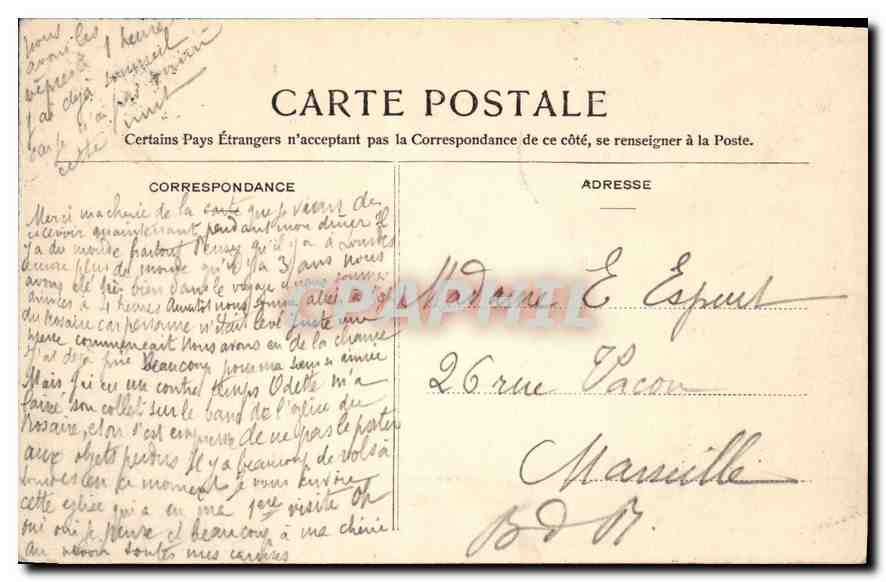 nous
avons les
vêpres à 1 heure
j'ai déjà sommeil
car je n'ai pas dormi
cette nuit
CARTE POSTALE
Certains Pays Étrangers n'acceptant pas la Correspondance de ce côté, se renseigner à la Poste.
CORRESPONDANCE
Merci ma cherie de la carte que je viens de
recevoir maintenant pendant mon dîner Il
y a du monde partout Pensez qu'il y a à Lourdes
encore plus de monde qu'il y a 3 ans nous
avons été très bien dans le voyage nous sommes
arrivés à 4 heures Aussitôt nous sommes allés à
du Rosaire car personne n'était levé juste une
messe commençait Nous avons eu de la chance
J'ai déjà prié Beaucoup pour ma sœur si aimée
Mais j'ai eu un contre temps Odette m'a
laissé son collet sur le banc de l'église du
Rosaire, et on s'est empressé de ne pas le porter
aux objets perdus Il y a beaucoup de vols à
Lourdes en ce moment Je vous envoie
cette église qui a eu ma 1ere visite Oh
oui oui je pense et beaucoup à ma chérie
au revoir toutes mes caresses
ADRESSE
Madame E Espeut
26 rue Vacon
Marseille
B d R.
CPAPHIL